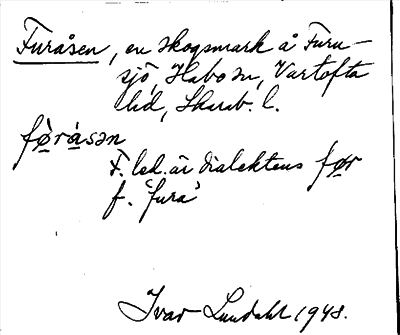 Furåsen, en skogsmark å Furu-
sjö, Habo sn, Vartofta
hd, Skarab. l.
fø̀råsən
F. led. är dialektens før
f. 'fura'
Ivar Lundahl 1948.